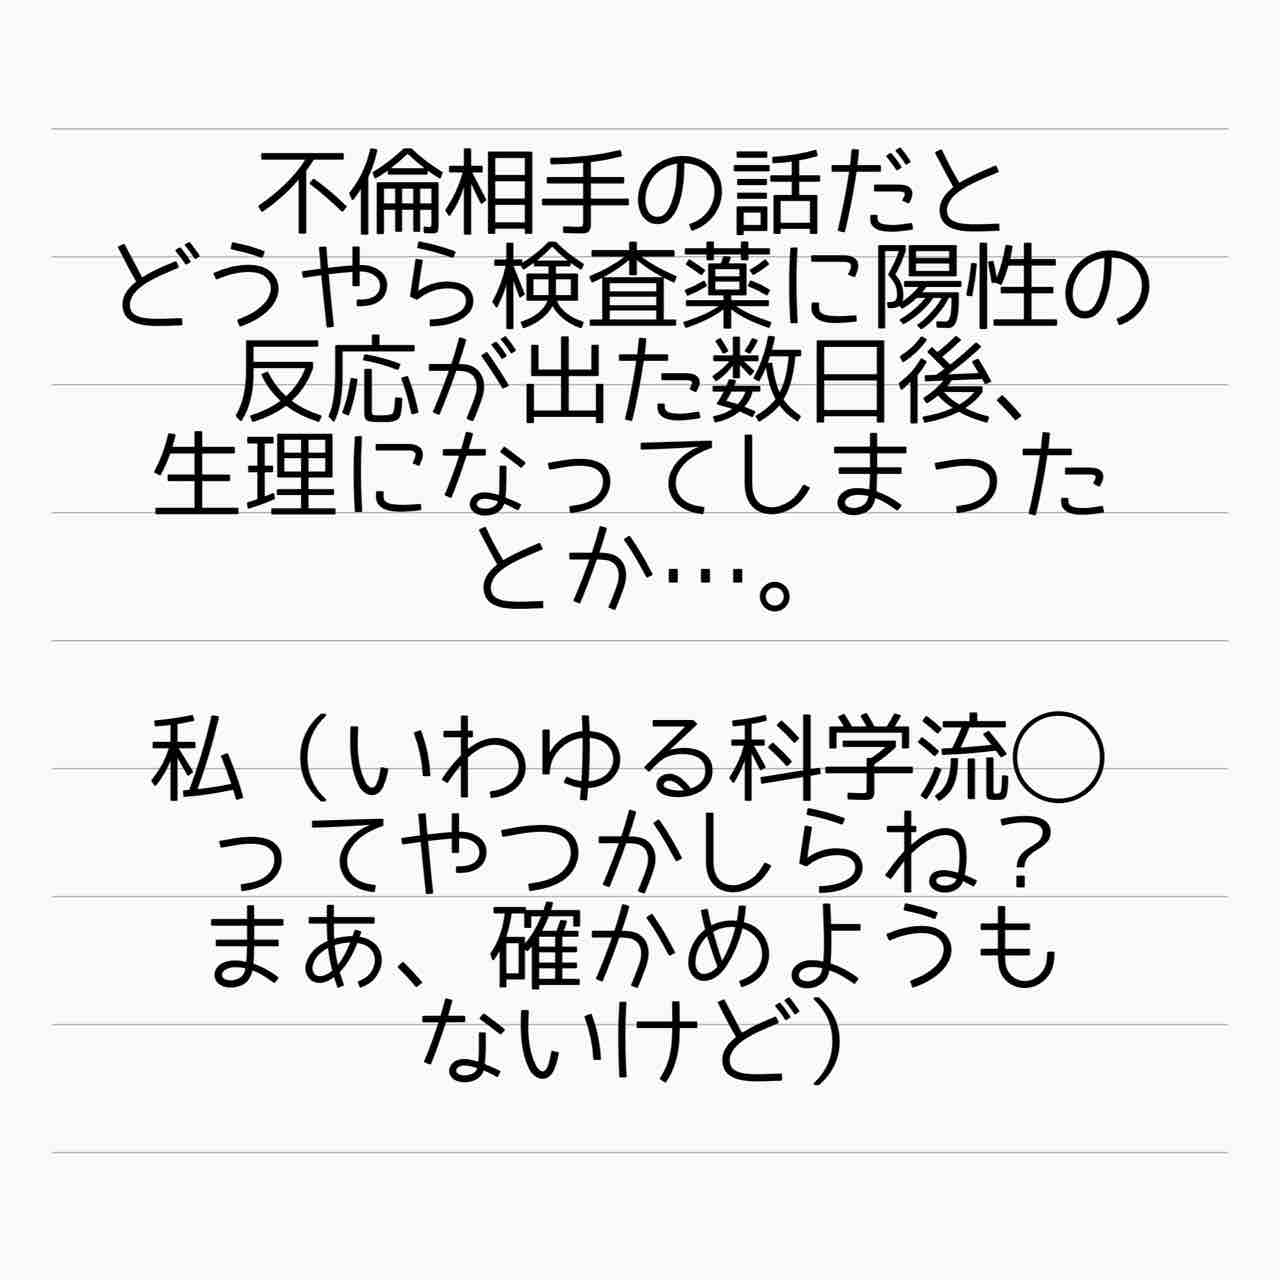 不倫相手の話だと
どうやら検査薬に陽性の
反応が出た数日後、
生理になってしまった
とか…。
私（いわゆる科学流◯
ってやつかしらね？
まあ、確かめようも
ないけど）